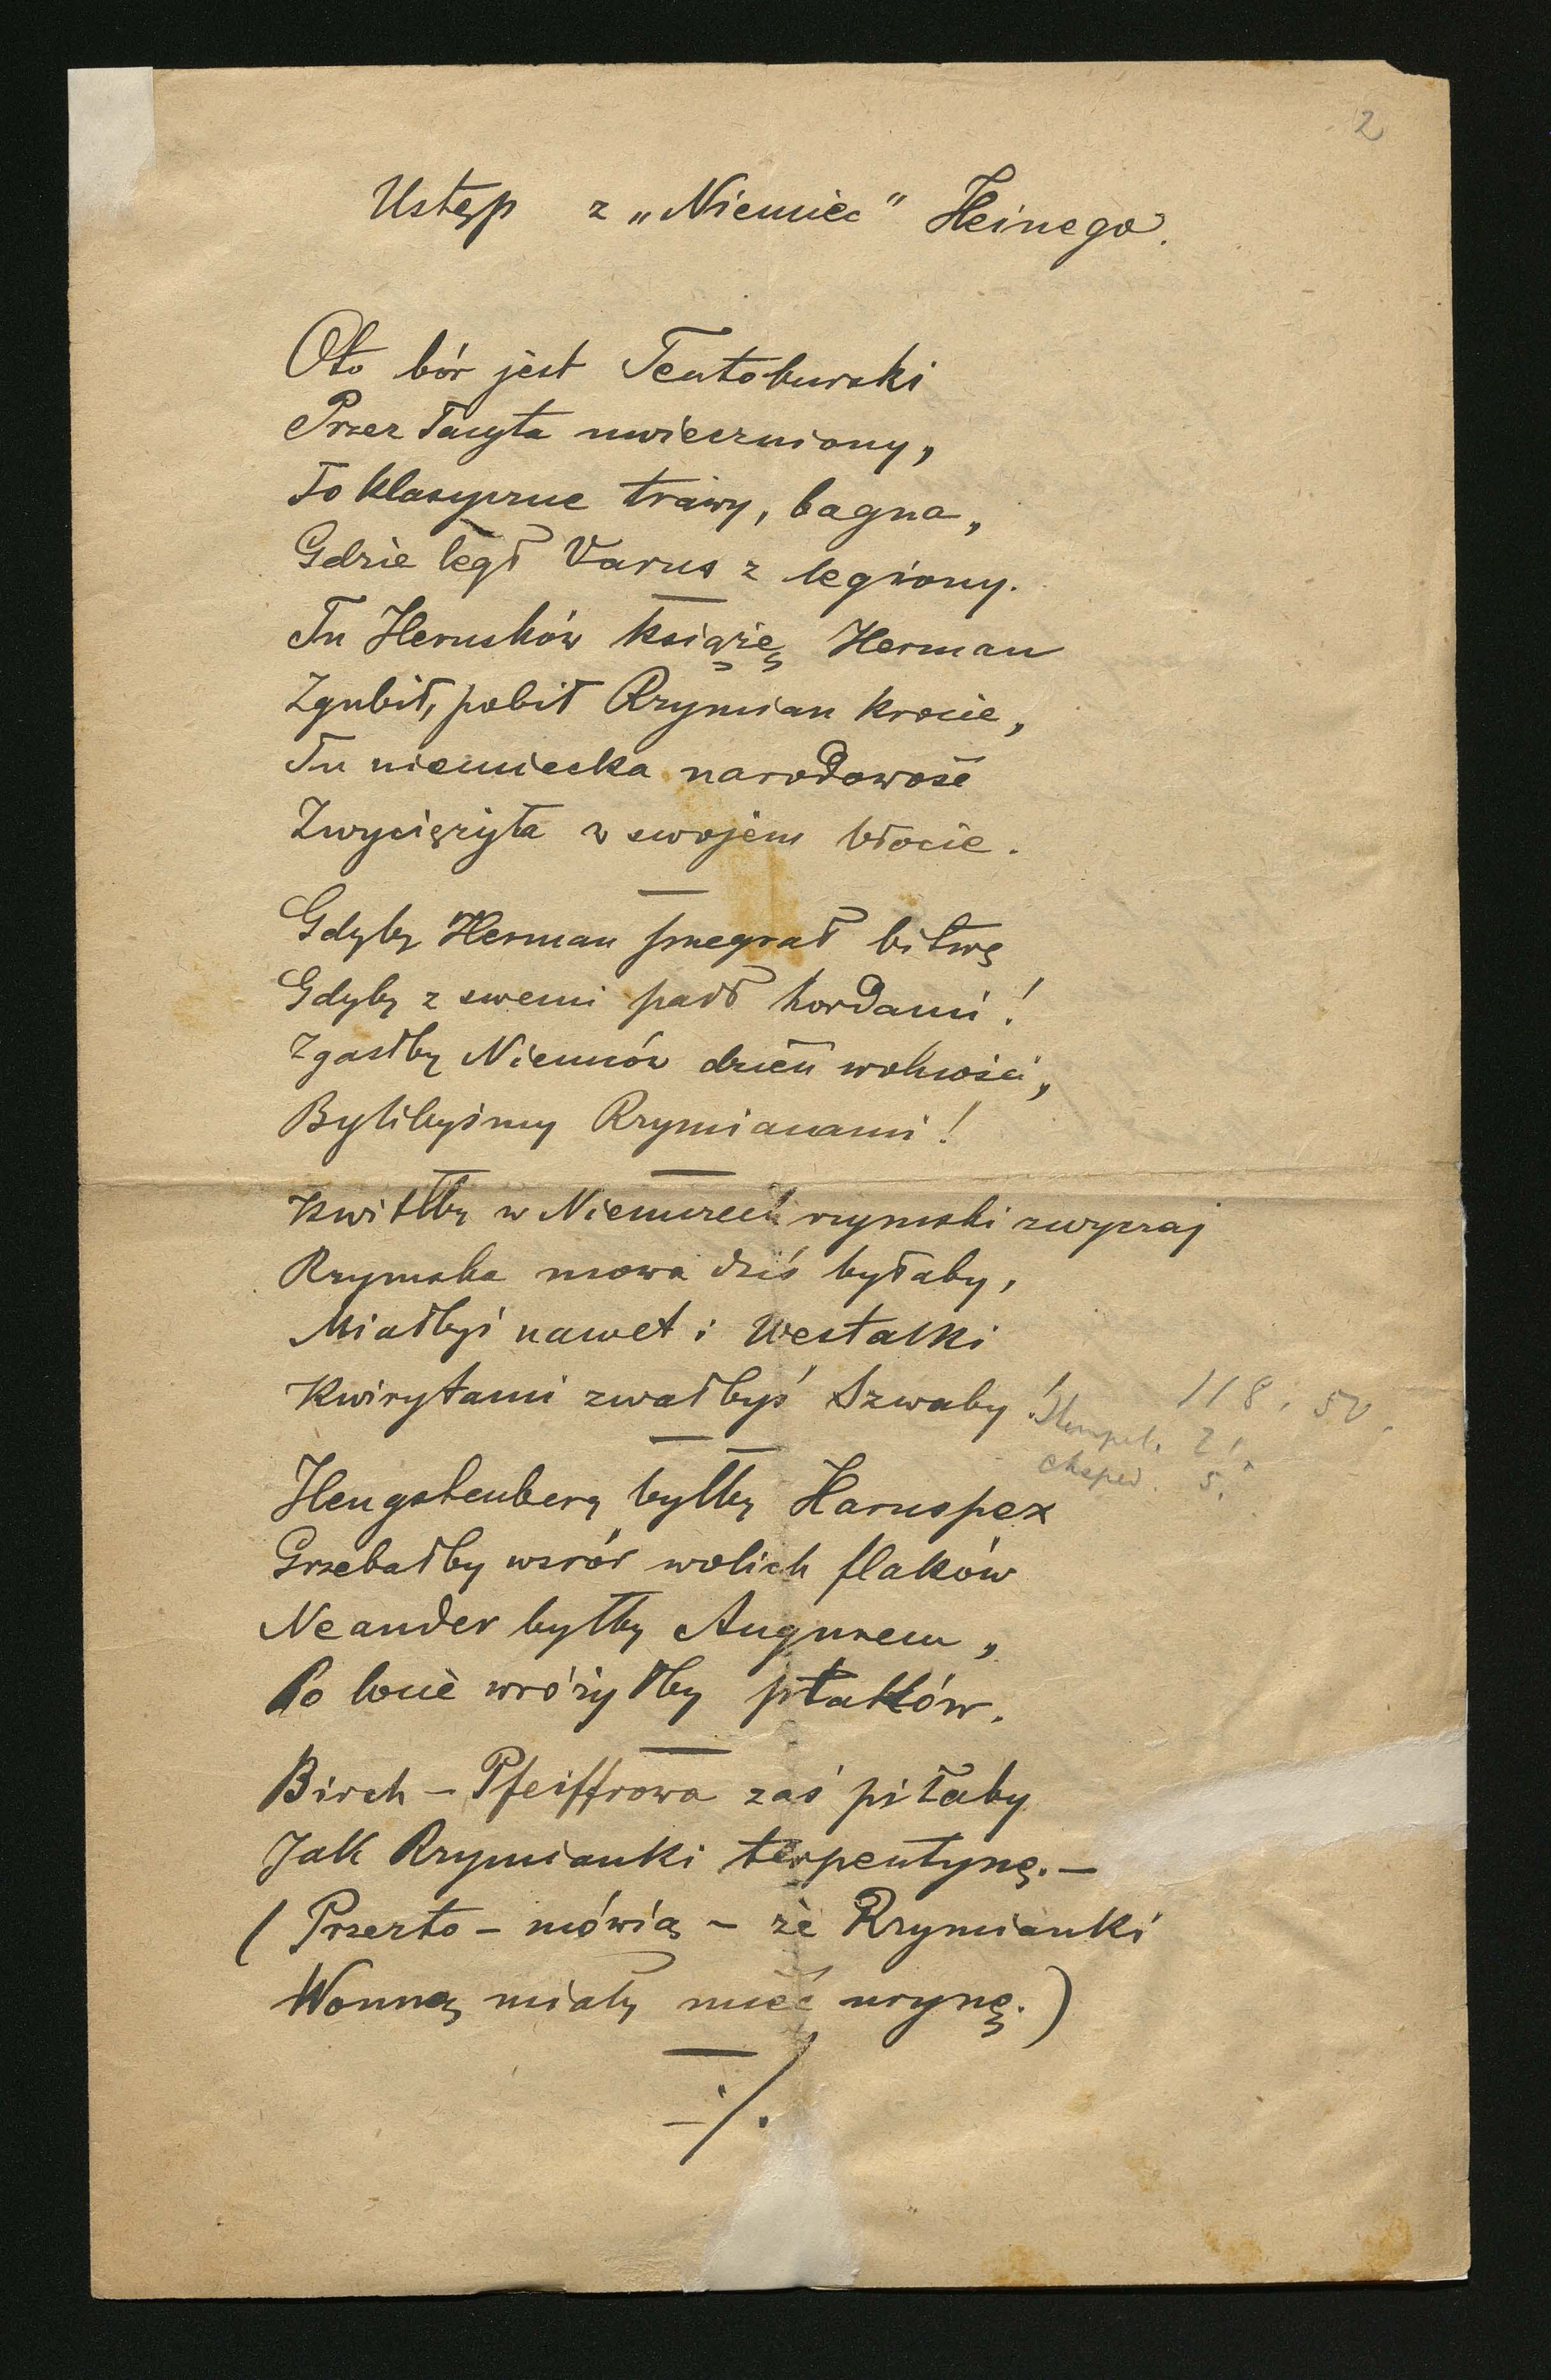 2
Ustęp z „Niemiec" Heinego.
Oto bór jest Teutoburski
Przez Tacyta uwieczniony,
To klasyczne trawy, bagna,
Gdzie legł Varus z legiony.
Tu Herusków książę Herman
Zgubił, pobił Rzymian krocie,
Tu niemiecka narodowość
Zwyciężyła w swojem błocie.
Gdyby Herman przegrał bitwę
Gdyby z swemi padł hordami!
Zgasłby Niemców dzień wolności,
Bylibyśmy Rzymianami!
Kwitłby w Niemczech rzymski zwyczaj
Rzymska mowa dziś byłaby,
Miałbyś nawet i Westalki
Kwirytami zwałbyś Szwaby!
118. 50.
Stempel. 2!
eksped. 5.
Hengstenberg byłby Haruspex
Grzebałby wsród wolich flaków
Neander byłby Augurem,
Po locie wróżyłby ptaków.
Birch - Pfeiffrowa zaś piłaby
Jak Rzymianki terpentynę. —
(Przezto - mówią - że Rzymianki
Wonną miały mieć urynę.)
./.